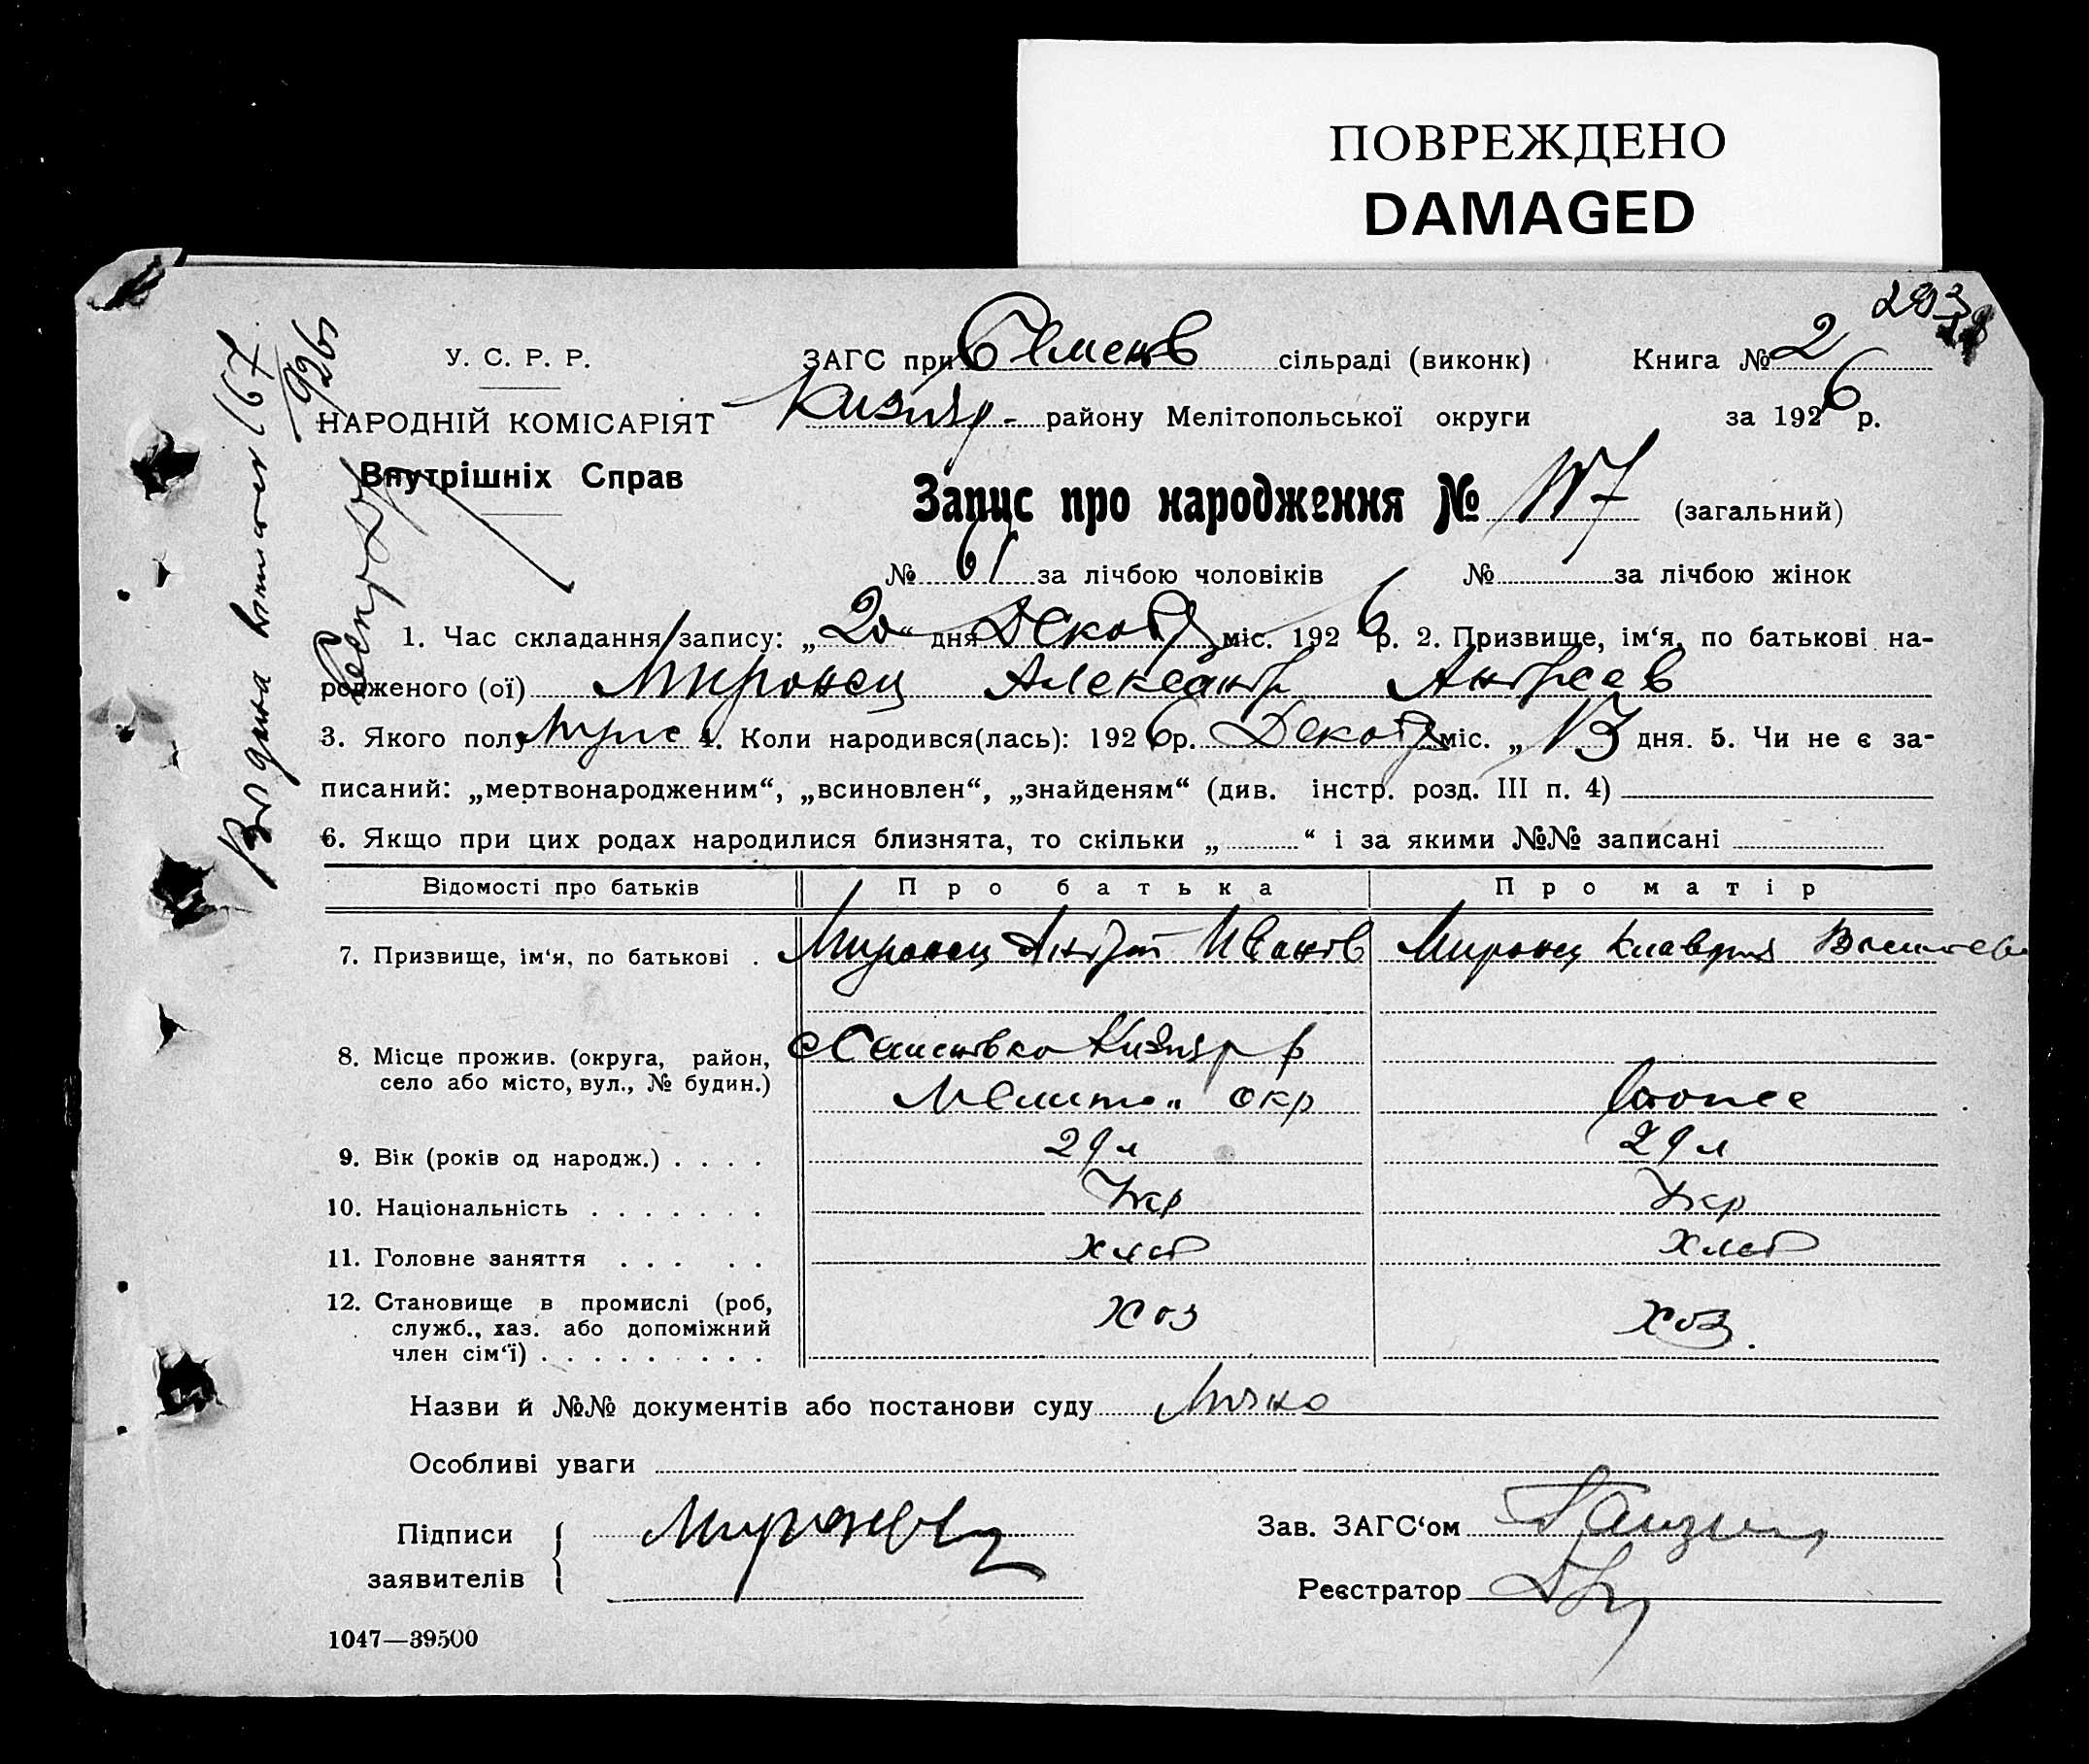 ПОВРЕЖДЕНО
DAMAGED
У. С. Р. Р.
НАРОДНІЙ КОМІСАРІЯТ
Внутрішніх Справ
ЗАГС при сільраді (виконк) Книга № 2
Кизияр- району Мелітопольської округи за 1926 р.
Запис про народження № 117 (загальний)
№ 61 за лічбою чоловіків № за лічбою жінок
1. Час складання запису: „20“ дня Декабр міс. 1926 р. 2. Призвище, ім‘я, по батькові на-
родженого (ої) Миронец Александр Андреев
3. Якого полу муж 4. Коли народився(лась): 1926 р. Декабр міс. „13 дня. 5. Чи не є за-
писаний: „мертвонародженим“, „всиновлен“, „знайденям“ (див. інстр. розд. III п. 4)
6. Якщо при цих родах народилися близнята, то скільки „ “ і за якими №№ записані
Відомості про батьків Про батька Про матір
7. Призвище, ім‘я, по батькові . Миронец Андрей Иванов Миронец Клавдия
8. Місце прожив. (округа, район, Кизияр р
село або місто, вул., № будин.) Мелитоп окр
9. Вік (років од народж.) . . . . 29 л 29 л
10. Національність . . . . . . . Укр Укр
11. Головне заняття . . . . . Хлеб Хлеб
12. Становище в промислі (роб, Хоз Хоз.
служб., хаз. або допоміжний
член сім‘ї) . . . . . . . . .
Назви й №№ документів або постанови суду
Особливі уваги
Підписи Миронец Зав. ЗАГС‘ом
заявителів Реєстратор
1047—39500